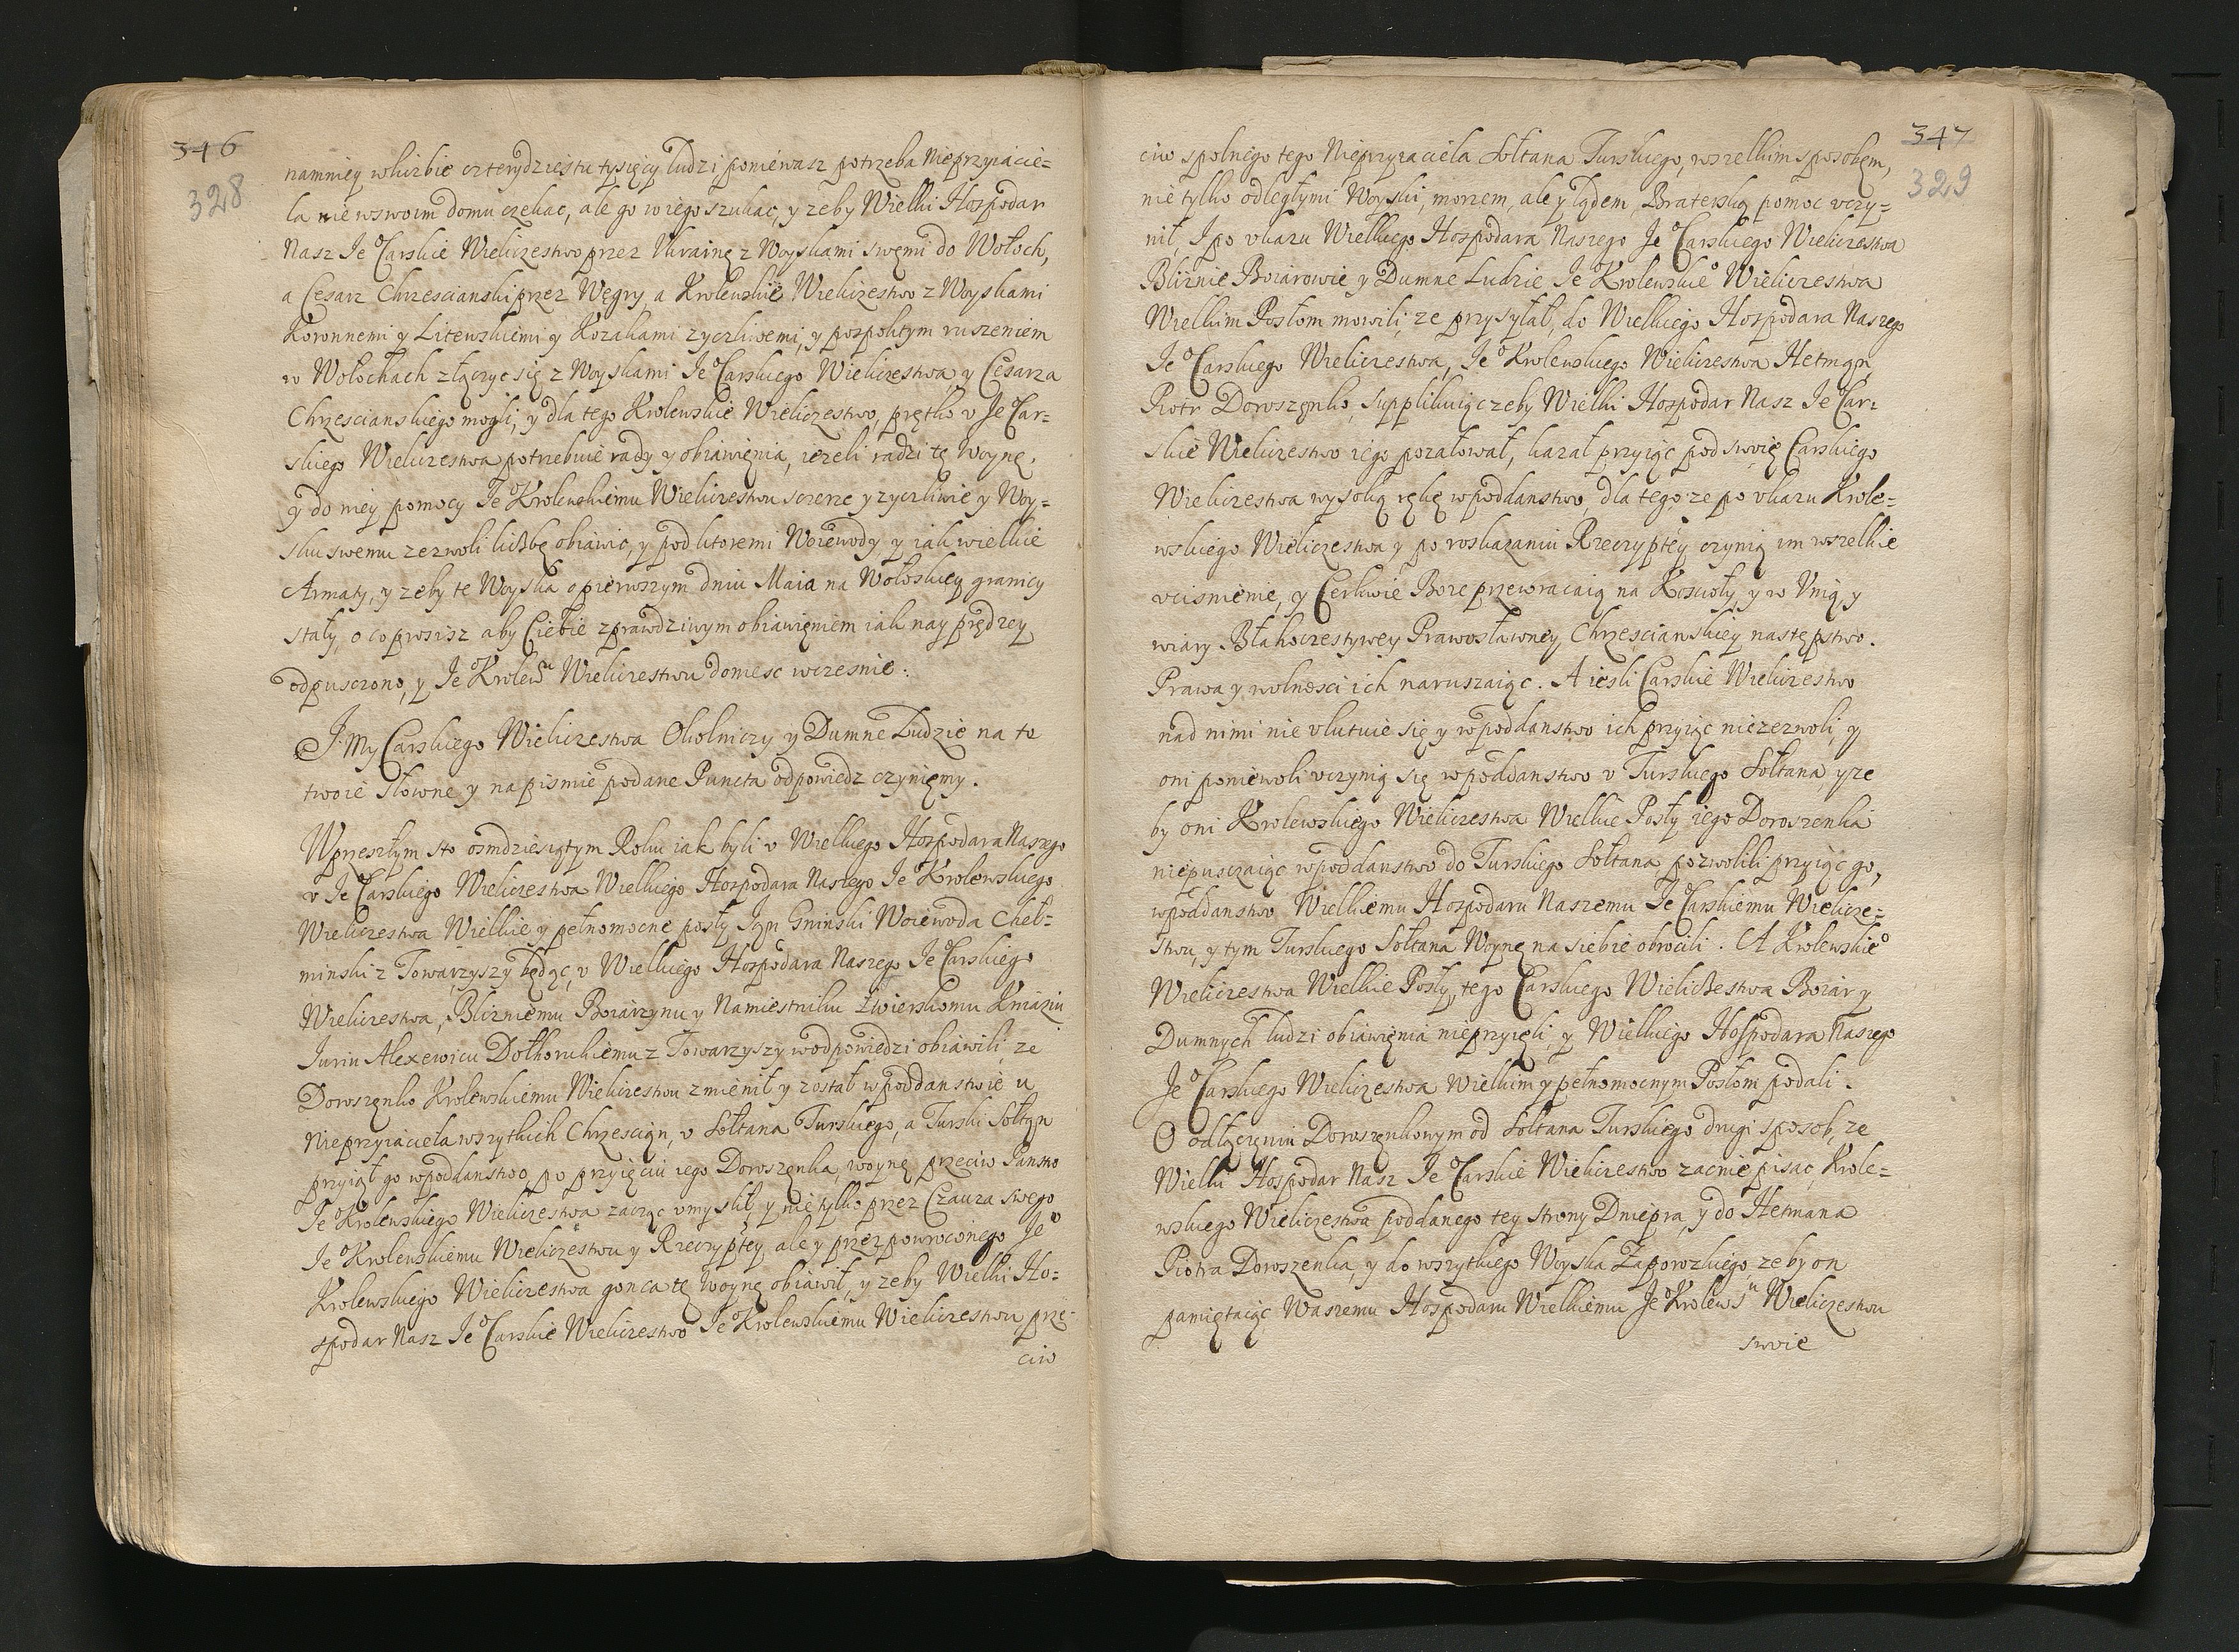 346
328
namniey w liczbie czterydziestu tysięcy ludzi, poniewasz potrzeba Nieprzyiacie=
la nie w swoim domu czekac, ale go w iego szukac, y zeby Wielki Hospodar
Nasz Je° Carskie Wieliczestwo przez Ukrainę z Woyskami swemi do Wołoch,
a Cesarz Chrzescianski przez Węgry, a Krolewskie Wieliczestwo z Woyskami
Koronnemi y Litewskiemi y Kozakami zyczliwemi, y pospolitym ruszeniem
w Wołochach złączyc się z Woyskami Je° Carskiego Wieliczestwa, y Cesarza
Chrzescianskiego mogli, y dla tego Krolewskie Wieliczestwo, prętko v Je° Car=
skiego Wieliczestwa potrzebuie rady y obiawięnia, iezeli radzi tę Woynę,
y do niey pomocy Je° Krolewskiemu Wieliczestwu szcerze y zyczliwie y Woy=
sku swemu zezwoli liczbę obiawic, y pod ktoremi Woiewody y iak wielkie
Armaty, y zeby te Woyska o pierwszym dniu Maia na Wołoskiey granicy
stały, o co prosisz aby Ciebie z prawdziwym obiawięniem iak nay prędzey
odpusczono, y Je° Krolewsᵘ Wieliczestwu doniesc wczesnie:
I My Carskiego Wieliczestwa Okolniczy y Dumne Ludzie na to
twoie słowne y na pismie podane Puncta odpowiedz czynięmy.
W przeszłym sto osmdziesiątym Roku iak byli v Wielkiego Hospodara Naszego
v Je° Carskiego Wieliczestwa Wielkiego Hospodara Naszego Je° Krolewskiego
Wieliczestwa Wielkie y pełnomocne posły Jąn Gninski Woiewoda Cheł=
minski z Towarzyszy będąc, v Wielkiego Hospodara Naszego Je° Carskiego
Wieliczestwa, Blizniemu Boiarzynu y Namiestniku Twierskomu Kniaziu
Juriu Alexewicu Dołhorukiemu z Towarzyszy w odpowiedzi obiawili, ze
Doroszęnko Krolewskiemu Wieliczestwu zmienił y został w poddanstwie u
Nieprzyiaciela wszytkich Chrzescian, v Sołtana Turskiego, a Turski Sołtąn
przyiął go w poddanstwo, po przyięciu iego Doroszęnka, woynę przeciw Panstw
Je° Krolewskiego Wieliczestwa zacząc vmyslił, y nie tylko przez Czausza swego
Je° Krolewskiemu Wieliczestwu y Rzeczyptey, ale y przez powroconego Je°
Krolewskiego Wieliczestwa gonca tę Woynę obiawił, y zeby Wielki Ho=
spodar Nasz Je° Carskie Wieliczestwo Je° Krolewskiemu Wieliczestwu, prze=
ciw
347
329
ciw spolnego tego Nieprzyiaciela Sołtana Turskiego, wszelkim sposobem,
nie tylko odległymi Woyski, morzem, ale y lądem, Braterską pomoc vczy=
nił, I po vkazu Wielkiego Hospodara Naszego Je° Carskiego Wieliczestwa
Bliznie Boiarowie y Dumne Ludzie Je° Krolewskie° Wieliczestwa
Wielkim Posłom mowili, ze przysyłał, do Wielkiego Hospodara Naszego
Je° Carskiego Wieliczestwa, Je° Krolewskiego Wieliczestwa Hetmąn
Piotr Doroszęnko, supplikuiąc zeby Wielki Hospodar Nasz Je° Car=
skie Wieliczestwo iego pozałował, kazał przyiąc pod swoię Carskiego
Wieliczestwa wysoką rękę w poddanstwo, dla tego ze po vkazu Krole=
wskiego Wieliczestwa y po roskazaniu Rzeczyptey czynią im wszelkie
vcisnienie, y Cerkwie Boze przewracaią na Koscioły, y w Unią, y
wiary Błahoczestywey Prawosławney Chrzescianskiey następstwo.
Prawa y wolnosci ich naruszaiąc. A iesli Carskie Wieliczestwo
nad nimi nie vlutuie się y w poddanstwo ich przyiąc niezezwoli, y
oni poniewoli vczynią się w poddanstwo v Turskiego Sołtana, y ze
by oni Krolewskiego Wieliczestwa Wielkie Posły iego Doroszenka
niepusczaiąc w poddanstwo do Turskiego Sołtana, pozwolili przyiąc go,
w poddanstwo Wielkiemu Hospodaru Naszemu Je° Carskiemu Wielicze=
stwu, y tym Turskiego Sołtana Woynę na siebie obrocili. A Krolewskie°
Wieliczestwa Wielkie Posły, tego Carskiego Wieliczestwa Boiar y
Dumnych ludzi obiawięnia nieprzyięli, y Wielkiego Hospodara Naszego
Je° Carskiego Wieliczestwa Wielkim y pełnomocnym Posłom podali.
O odłączęniu Doroszęnkowym od Sołtana Turskiego drugi sposob, ze
Wielki Hospodar Nasz Je° Carskie Wieliczestwo zacnie pisac, Krole=
wskiego Wieliczestwa poddanego tey strony Dniepra, y do Hetmana
Piotra Doroszenka, y do wszytkiego Woyska Zaporozkiego, zeby on
pamiętaiąc Waszemu Hospodaru Wielkiemu Je° Krolewsᵘ Wieliczestwu
swoie